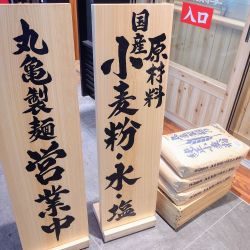 丸亀製麺
営業中
国産
原材料
小麦粉・水・塩
入口